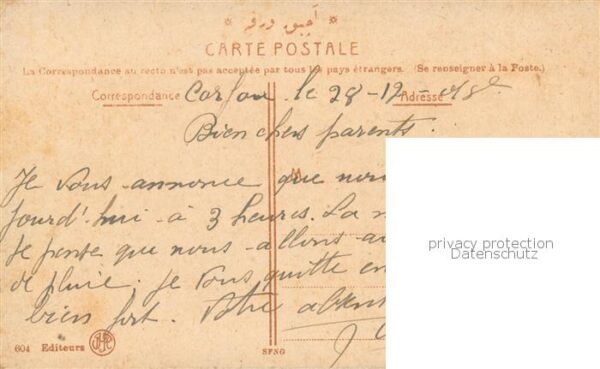 آچیق ورقه
CARTE POSTALE
La Correspondance au recto n'est pas acceptée par tous les pays étrangers. (Se renseigner à la Poste.)
Correspondance
Adresse
Corfou le 28-12-
Bien chers parents.
M
Je vous annonce que nou
jourd'hui à 3 heures. La
Je pense que nous allons au
de pluie. Je vous quitte en
bien fort. Votre
privacy protection
Datenschutz
604 Editeurs
SFNG